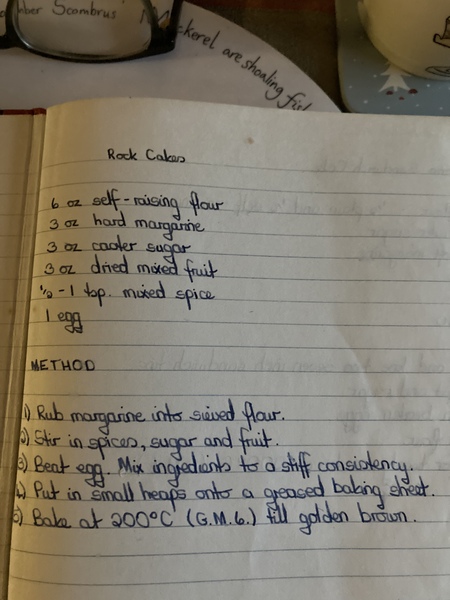 Scombrus
Mackerel are shoaling fish
Rock Cakes
6 oz self-raising flour
3 oz hard margarine
3 oz caster sugar
3 oz dried mixed fruit
½-1 tsp. mixed spice
1 egg
METHOD
1) Rub margarine into sieved flour.
2) Stir in spices, sugar and fruit.
3) Beat egg. Mix ingredients to a stiff consistency.
4) Put in small heaps onto a greased baking sheet.
5) Bake at 200°C (G.M.6.) till golden brown.